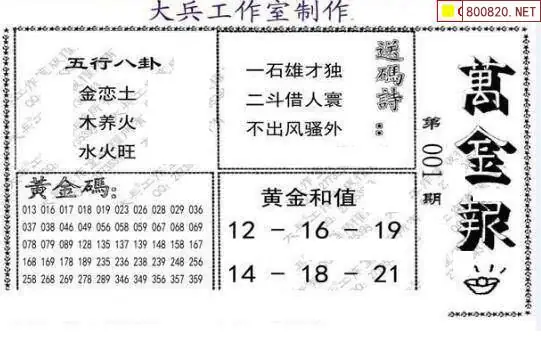 大兵工作室制作
800820.NET
五行八卦
金恋土
木养火
水火旺
送碼詩：
一石雄才独
二斗借人寰
不出风骚外
萬金報
第001期
黄金碼：
013 016 017 018 019 023 026 028 029 036
037 038 046 049 056 057 058 067 068 069
078 079 089 128 135 137 149 148 158 167
168 169 178 189 235 236 237 238 245 256
258 268 269 278 289 346 349 356 357 359
黄金和值
12 - 16 - 19
14 - 18 - 21